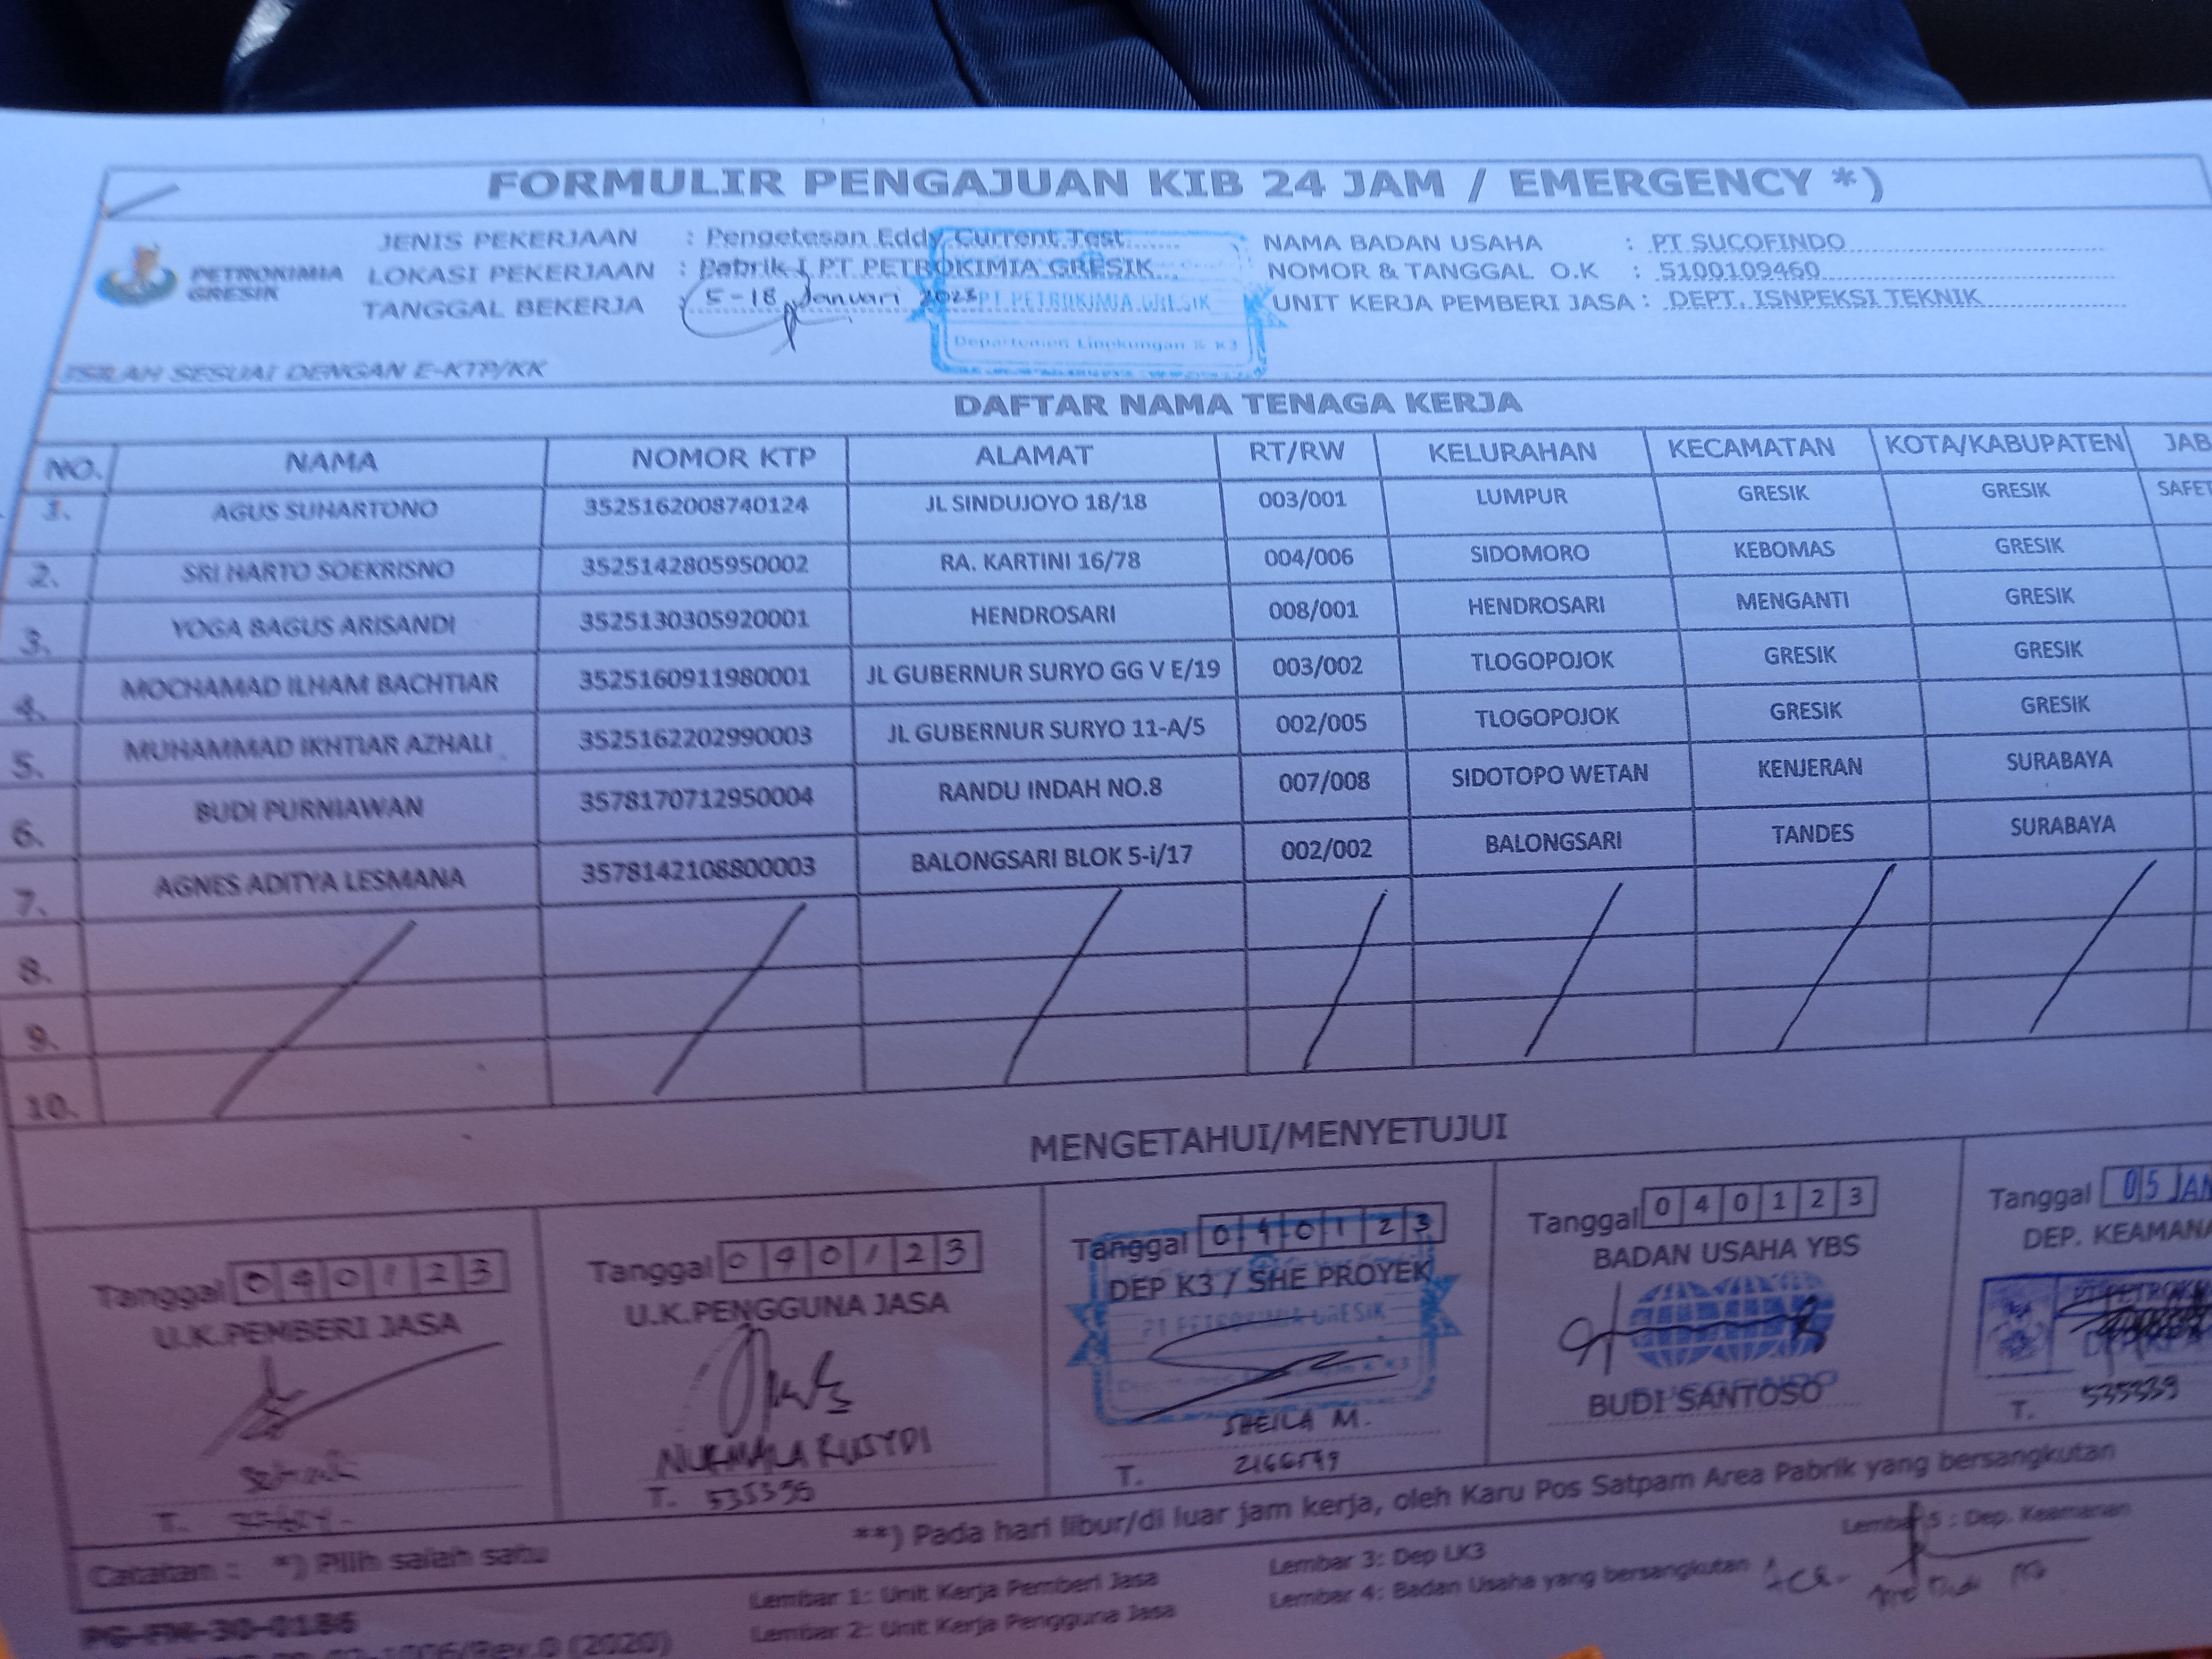 FORMULIR PENGAJUAN KIB 24 JAM / EMERGENCY *)
PETROKIMIA GRESIK
JENIS PEKERJAAN : Pengetesan Eddy Current Test
LOKASI PEKERJAAN : Pabrik I PT PETROKIMIA GRESIK
TANGGAL BEKERJA : 5-18 Januari 2023
NAMA BADAN USAHA : PT SUCOFINDO
NOMOR & TANGGAL O.K : 5100109460
UNIT KERJA PEMBERI JASA : DEPT. ISNPEKSI TEKNIK
PT PETROKIMIA GRESIK
Departemen Lingkungan & K3
ISILAH SESUAI DENGAN E-KTP/KK
DAFTAR NAMA TENAGA KERJA
NO. NAMA NOMOR KTP ALAMAT RT/RW KELURAHAN KECAMATAN KOTA/KABUPATEN JAB
1. AGUS SUHARTONO 3525162008740124 JL SINDUJOYO 18/18 003/001 LUMPUR GRESIK GRESIK SAFET
2. SRI HARTO SOEKRISNO 3525142805950002 RA. KARTINI 16/78 004/006 SIDOMORO KEBOMAS GRESIK
3. YOGA BAGUS ARISANDI 3525130305920001 HENDROSARI 008/001 HENDROSARI MENGANTI GRESIK
4. MOCHAMAD ILHAM BACHTIAR 3525160911980001 JL GUBERNUR SURYO GG V E/19 003/002 TLOGOPOJOK GRESIK GRESIK
5. MUHAMMAD IKHTIAR AZHALI 3525162202990003 JL GUBERNUR SURYO 11-A/5 002/005 TLOGOPOJOK GRESIK GRESIK
6. BUDI PURNIAWAN 3578170712950004 RANDU INDAH NO.8 007/008 SIDOTOPO WETAN KENJERAN SURABAYA
7. AGNES ADITYA LESMANA 3578142108800003 BALONGSARI BLOK 5-i/17 002/002 BALONGSARI TANDES SURABAYA
8.
9.
10.
MENGETAHUI/MENYETUJUI
Tanggal 040123
U.K.PEMBERI JASA
T.
Tanggal 040123
U.K.PENGGUNA JASA
NURMALA RUSYDI
T. 535356
Tanggal 040123
DEP K3 / SHE PROYEK
PT PETROKIMIA GRESIK
SHEILA M.
T.
Tanggal 040123
BADAN USAHA YBS
BUDI SANTOSO
Tanggal 05 JAN
DEP. KEAMANA
T. 535539
**) Pada hari libur/di luar jam kerja, oleh Karu Pos Satpam Area Pabrik yang bersangkutan
Catatan : *) Pilih salah satu
Lembar 1: Unit Kerja Pemberi Jasa
Lembar 2: Unit Kerja Pengguna Jasa
Lembar 3: Dep LK3
Lembar 4: Badan Usaha yang bersangkutan
Lembar 5 : Dep. Keamanan
PG-FM-30-0186